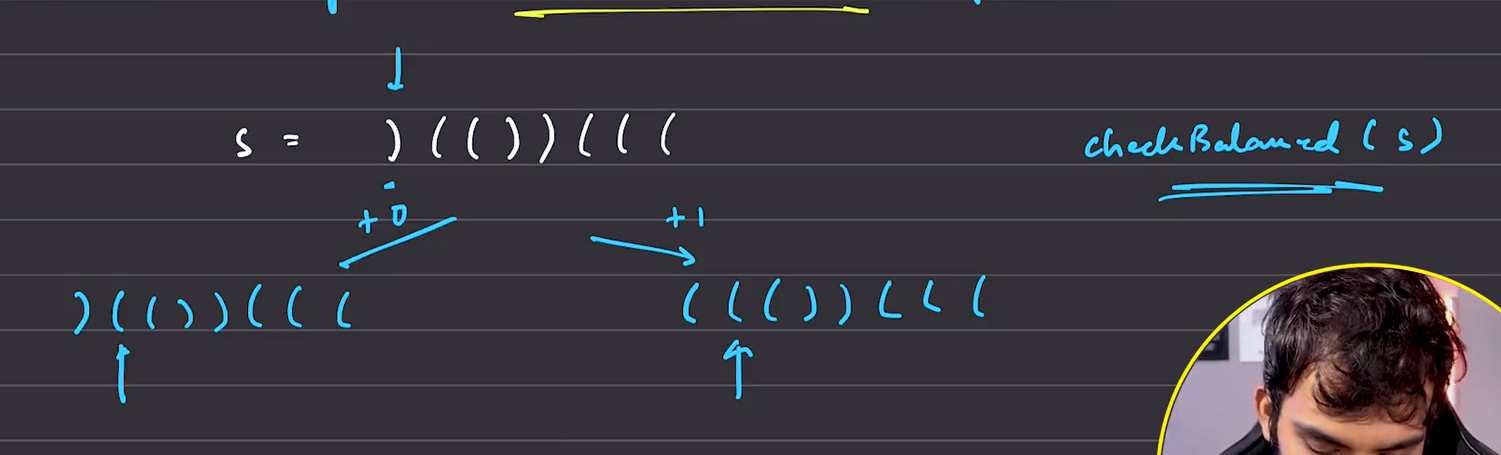 s = ) ( ( ) ) ( ( ( checkBalanced ( s )
+ 0 + 1
) ( ( ) ) ( ( ( ( ( ( ) ) ( ( (